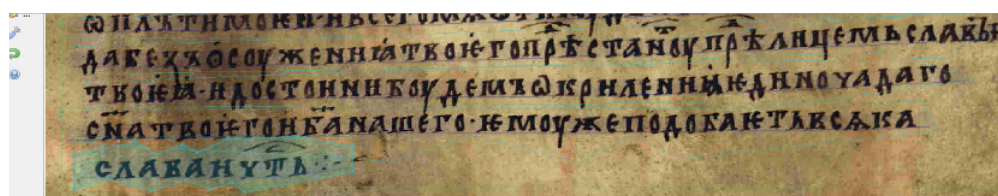 дабезъѻсоуженниꙗтвоѥгопрѣстан̑оупрѣлицемьславꙑ
твоѥꙗ·идостоинибоудемъѡкриленниꙗѥдиночадаго
сн҃атвоѥгоиб҃анашего·ѥмоужеподобаѥтьвсѧка
славаичть⁘-